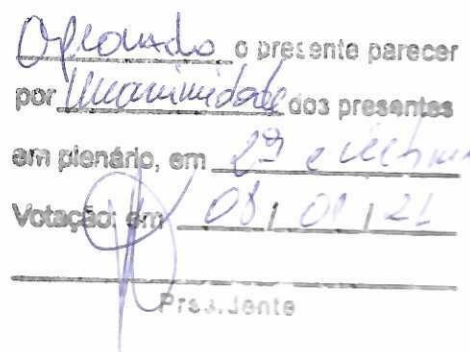 Aprovado o presente parecer
por Unanimidade dos presentes
em plenário, em 2ª e última
Votação: em 08 / /21
Presidente